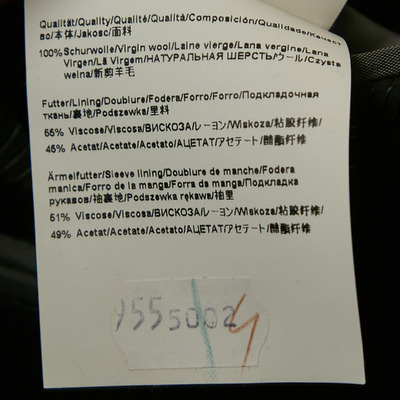 Qualität/Quality/Qualité/Qualità/Composición/Qualidade/Качест
во/本体/Jakość/面料
100% Schurwolle/Virgin wool/Laine vierge/Lana vergine/Lana
Virgen/Lã Virgem/НАТУРАЛЬНАЯ ШЕРСТЬ/ウール/Czysta
wełna/新剪羊毛
Futter/Lining/Doublure/Fodera/Forro/Forro/Подкладочная
ткань/裏地/Podszewka/里料
55% Viscose/Viscosa/ВИСКОЗА/レーヨン/Wiskoza/粘胶纤维/
45% Acetat/Acetate/Acetato/АЦЕТАТ/アセテート/醋酯纤维
Ärmelfutter/Sleeve lining/Doublure de manche/Fodera
manica/Forro de la manga/Forra da manga/Подкладка
рукавов/袖裏地/Podszewka rękawa/袖里
51% Viscose/Viscosa/ВИСКОЗА/レーヨン/Wiskoza/粘胶纤维/
49% Acetat/Acetate/Acetato/АЦЕТАТ/アセテート/醋酯纤维
9555002